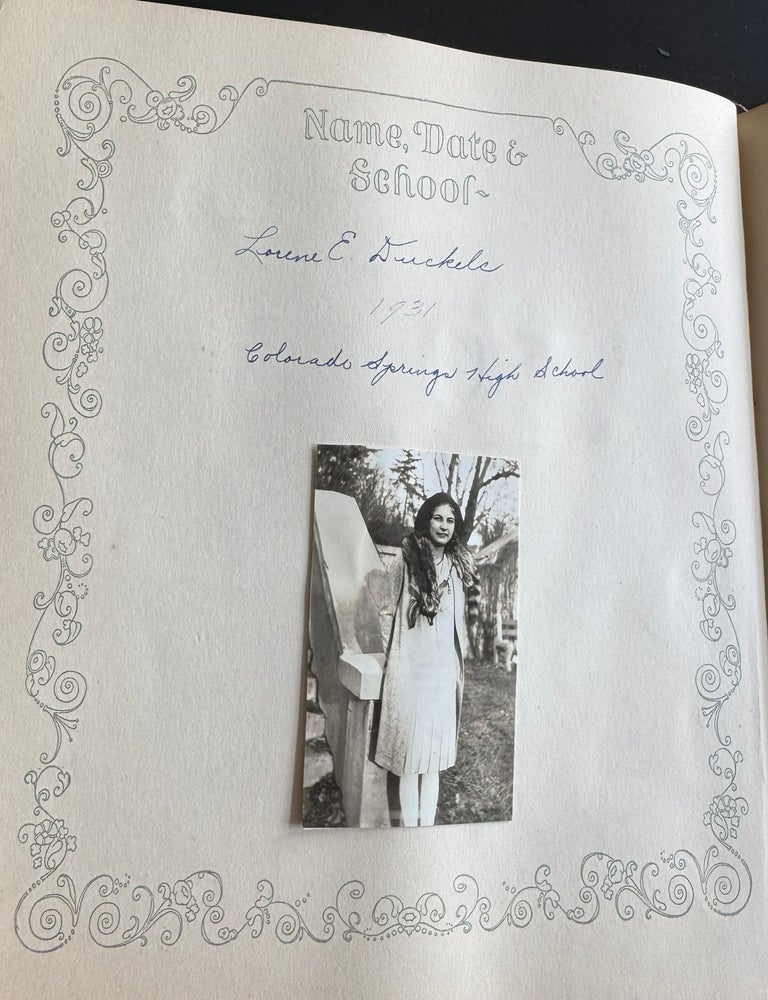 Name, Date &
School~
Lorene E. Duckels
1931
Colorado Springs High School